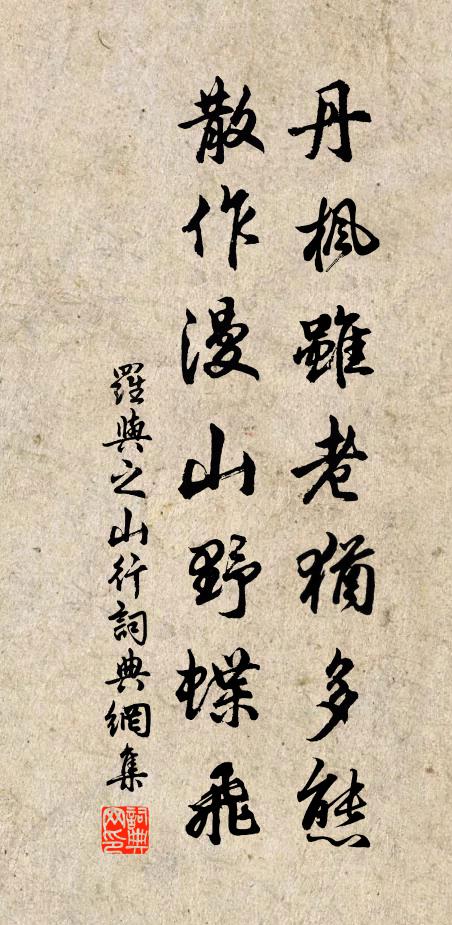 丹楓雖老猶多態
散作漫山野蝶飛
羅與之山行詞典網集
詞典網印